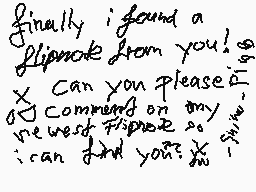 finally i found a
flipnote from you!
X Can you please
comment on my
newest flipnote so
i can find you??